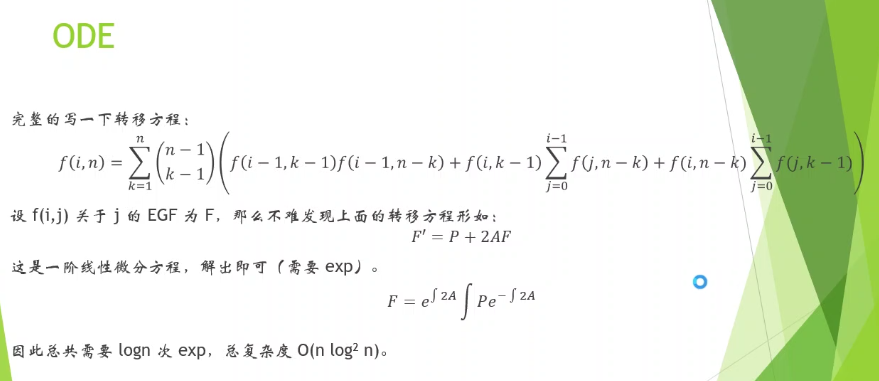 ODE
完整的写一下转移方程：
f(i, n) = \sum_{k=1}^{n} \binom{n-1}{k-1} \left( f(i-1, k-1) f(i-1, n-k) + f(i, k-1) \sum_{j=0}^{i-1} f(j, n-k) + f(i, n-k) \sum_{j=0}^{i-1} f(j, k-1) \right)
设 f(i,j) 关于 j 的 EGF 为 F，那么不难发现上面的转移方程形如：
F' = P + 2AF
这是一阶线性微分方程，解出即可（需要 exp）。
F = e^{\int 2A} \int P e^{-\int 2A}
因此总共需要 logn 次 exp，总复杂度 O(n log² n)。